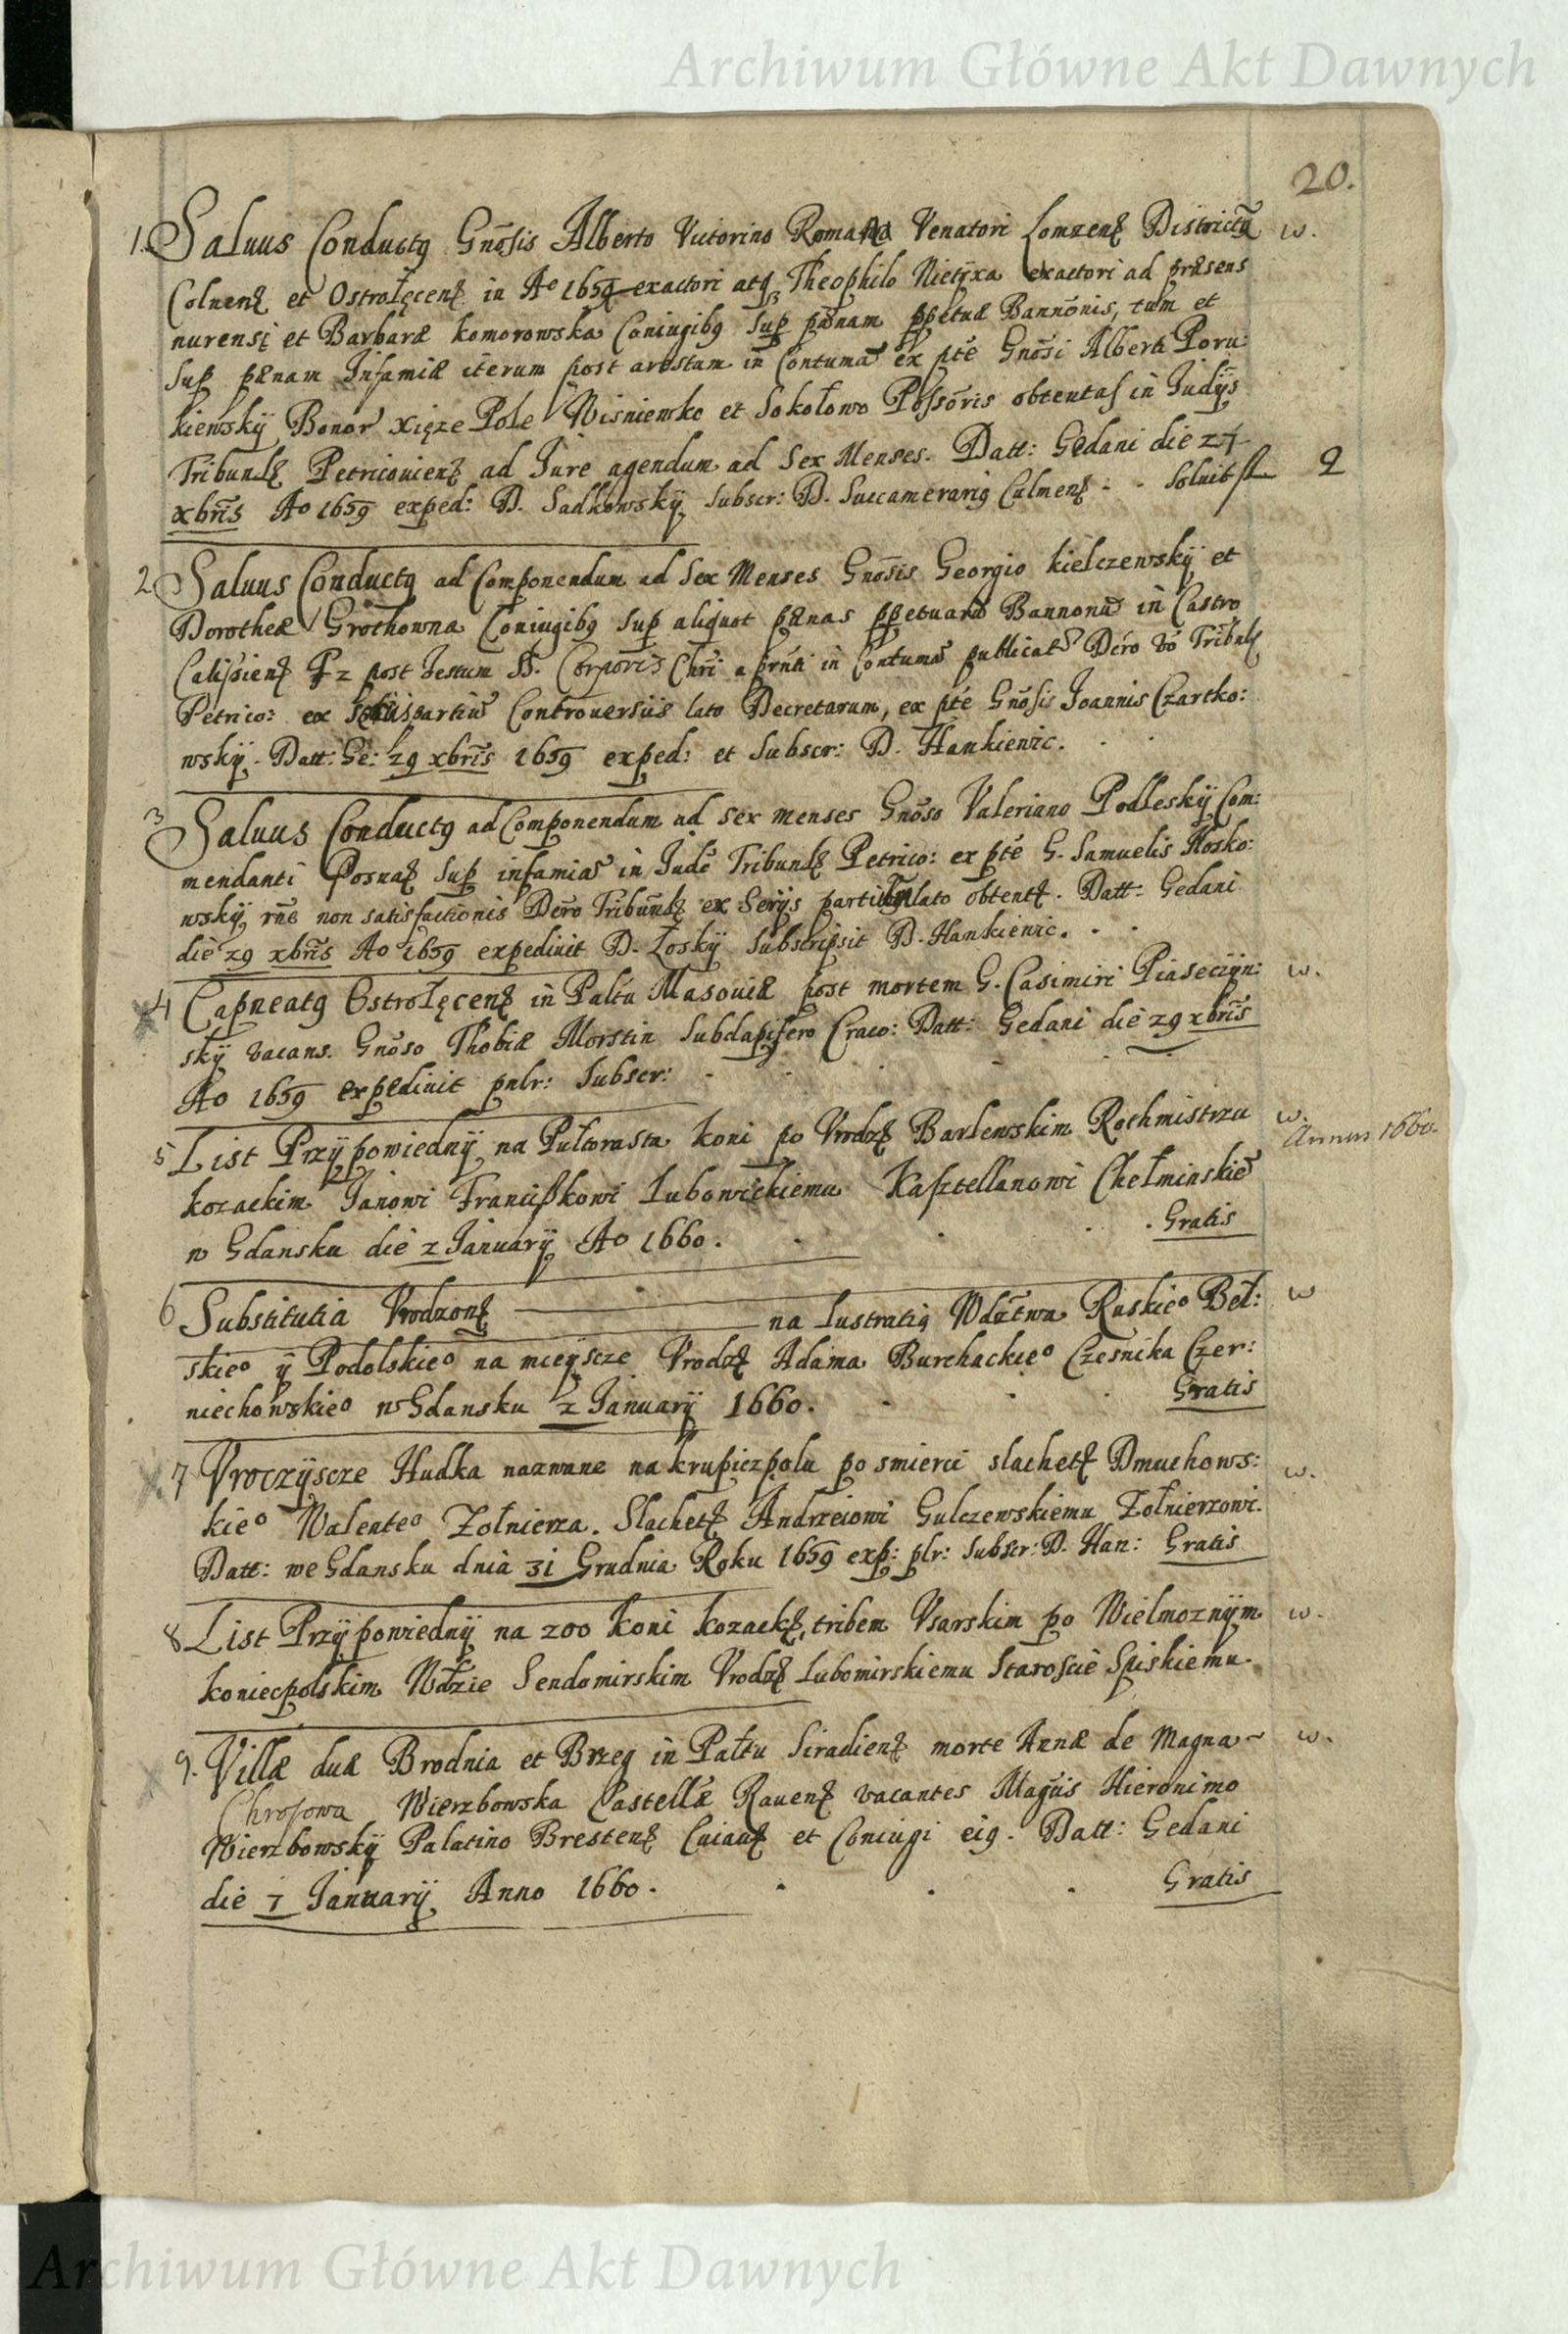 Archiwum Główne Akt Dawnych
20.
1. Saluus Conductq Gnosis Alberto Victorino Romano Venatori Lomzen Districtu w.
Colnen et Ostrołęcen in Ao 1659 exactori atq Theophilo Nietyxa exactori ad præsens
nurensi et Barbaræ komorowska Coniugibq Sup pænam ppetuæ Bannonis, tum et
Sup pænam Infamiæ iterum post arestum in Contuma ex pte Gnosi Alberti Poru:
kiewskÿ Bonor Xięze Pole Wisniewko et Sokołowo Possoris obtentas in Judÿs
Tribunl Petricouien ad Jure agendum ad Sex Menses. Datt: Gedani die 27
xbris Ao 1659 exped: D. Sadkowskÿ Subscr: D. Succamerariq Culmen - - Soluit fl 2
2 Saluus Conductq ad Componendum ad Sex Menses Gnosis Georgio kielczewskÿ et
Dorotheæ Grothowna Coniugibq Sup aliquot pænas ppetuaru Bannonu in Castro
Calisien post festum SS. Corporis Chri a in Contuma publicat Dcro vo Tribnl
Petrico: ex partiu Controuersiis lato Decretarum, ex pte Gnosis Joannis Czartko:
wskÿ. Datt: Ge: 29 xbris 1659 exped: et Subscr: D. Hankiewic. . .
3 Saluus Conductq ad Componendum ad sex menses Gnoso Valeriano Podleskÿ Com:
mendanti Posna Sup infamia in Jude Tribunl Petrico: ex pte G. Samuelis Kosko:
wskÿ rne non satisfactionis Dcro Tribunl ex Serÿs lato obtent. Datt: Gedani
die 29 xbris Ao 1659 expediuit D. Łoskÿ Subscripsit D. Hankiewic. . .
4 Capneatq Ostrołęcen in Paltu Masouiæ post mortem G. Casimiri Piaseczÿn: w.
skÿ vacans. Gnoso Thobiæ Morstin Subdapifero Craco: Datt: Gedani die 29 xbris
Ao 1659 expediuit pnlr: Subscr: - - . - .
5 List Przÿpowiednÿ na Pułtorasta koni po Vrodz Barlewskim Rothmistrzu w.
Annus 1660.
kozackim Janowi Franciszkowi Lubowickiemu Kasztellanowi Chełminskie
w Gdansku die 2 Januarÿ Ao 1660. . . . . Gratis
6 Substitutia Vrodzon na Lustratią Wdztwa Ruskieo Beł: w
skieo ÿ Podolskieo na mieÿscze Vrodz Adama Burchackieo Czesnika Czer:
niechowskieo w Gdansku 2 Januarÿ 1660. - . . Gratis
7 Vroczÿscze Hudka nazwane na krupiczpolu po smierci slachet Dmuchows: w.
kieo Walenteo Zołnierza. Slachet Andrzeiowi Gulczewskiemu Zołnierzowi.
Datt: we Gdansku dnia 31 Grudnia Roku 1659 exp: plr: Subscr: D. Han: Gratis
8 List Przÿpowiednÿ na 200 koni kozack, tribem Vsarskim po Wielmoznÿm w.
koniecpolskim Wdzie Sendomirskim Vrodz Lubomirskiemu Staroscie Spiskiemu.
9. Villæ duæ Brodnia et Brzeg in Paltu Siradien morte Annæ de Magna w.
Chrosowa Wierzbowska Castellæ Rauen vacantes Magcis Hieronimo
Wierzbowskÿ Palatino Bresten Cuiau et Coniugi eiq. Datt: Gedani
die 7 Januarÿ Anno 1660. . . . Gratis
Archiwum Główne Akt Dawnych